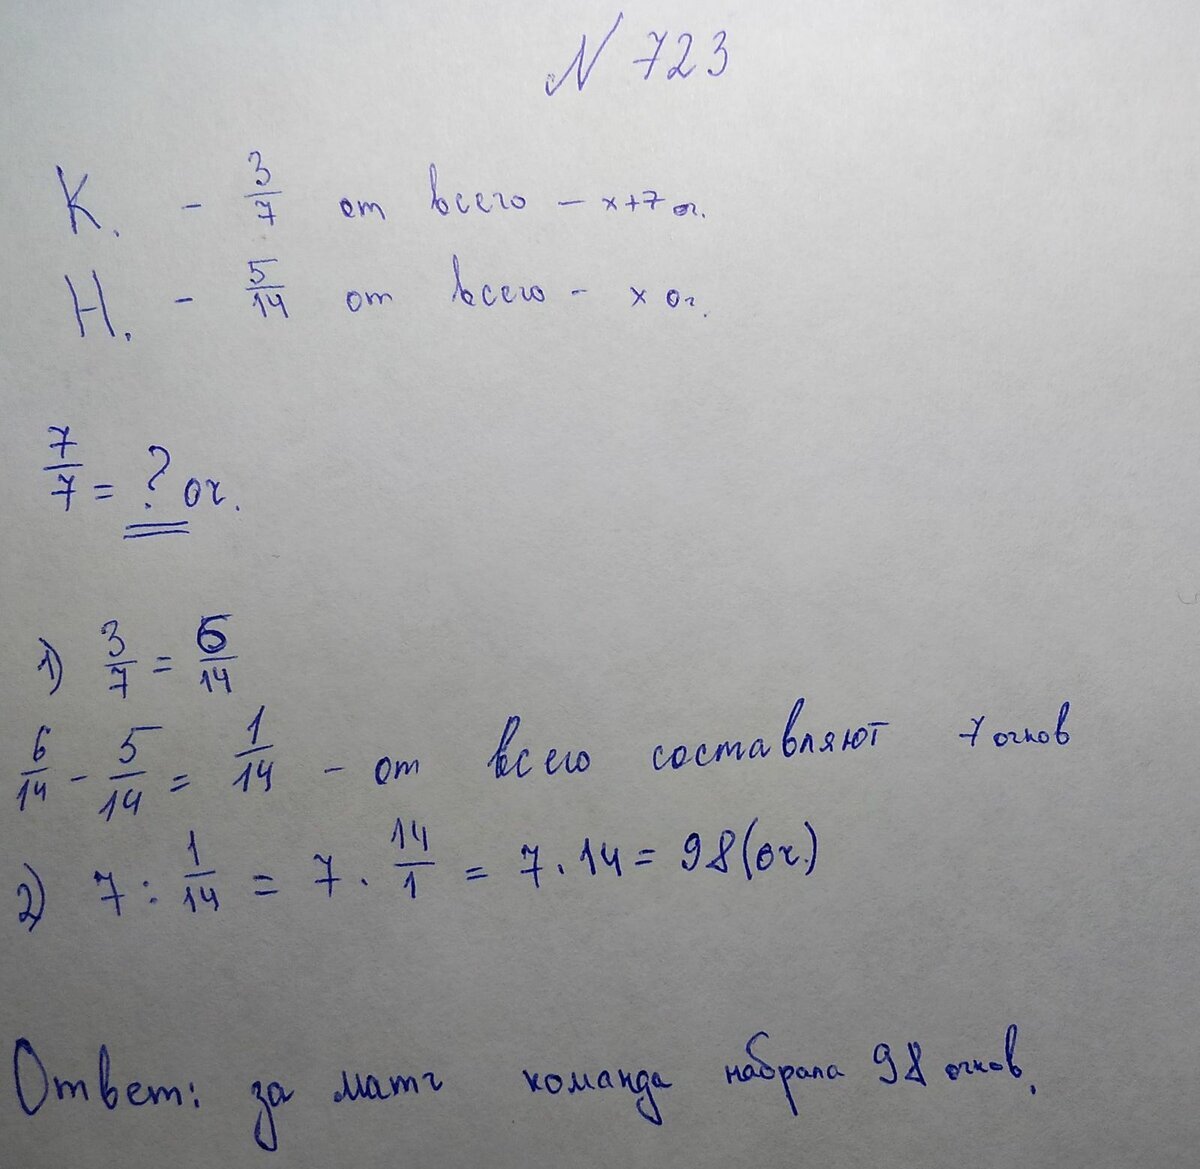 N 723
К. - 3/7 от всего - x+7 оч.
Н. - 5/14 от всего - x оч.
7/7 = ? оч.
1) 3/7 = 6/14
6/14 - 5/14 = 1/14 - от всего составляют 7 очков
2) 7 : 1/14 = 7 · 14/1 = 7 · 14 = 98 (оч.)
Ответ: за матч команда набрала 98 очков.